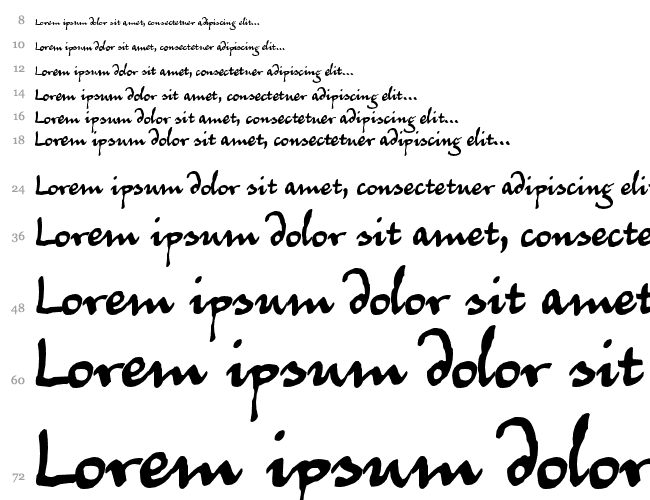 8 Lorem ipsum dolor sit amet, consectetuer adipiscing elit...
10 Lorem ipsum dolor sit amet, consectetuer adipiscing elit...
12 Lorem ipsum dolor sit amet, consectetuer adipiscing elit...
14 Lorem ipsum dolor sit amet, consectetuer adipiscing elit...
16 Lorem ipsum dolor sit amet, consectetuer adipiscing elit...
18 Lorem ipsum dolor sit amet, consectetuer adipiscing elit...
24 Lorem ipsum dolor sit amet, consectetuer adipiscing eli
36 Lorem ipsum dolor sit amet, consecte
48 Lorem ipsum dolor sit amet
60 Lorem ipsum dolor sit
72 Lorem ipsum dolor